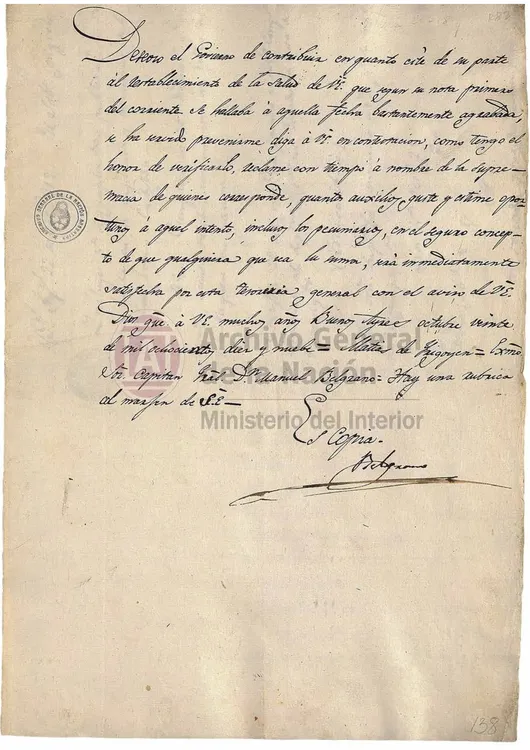 Deseoso el Govierno de contribuir en quanto esté de su parte
al restablecimiento de la salud de VE. que segun su nota primero
del corriente se hallaba á aquella fecha bastantemente agravada,
se ha servido prevenirme diga á VE. en contestacion, como tengo el
honor de verificarlo, reclame con tiempo á nombre de la supre-
macia de quienes corresponde, quantos auxilios guste y estime opor-
tunos á aquel intento, inclusos los pecuniarios, en el seguro concep-
to de que qualquiera que sea la suma, será inmediatamente
satisfecha por esta Tesoreria general con el aviso de VE.
Dios gue. á VE. muchos años Buenos Ayres octubre veinte
de mil ochocientos diez y nueve = Matias de Yrigoyen = Exmo
Sor. Capitan Gral. Dn Manuel Belgrano = Hay una rubrica
al margen de S.E. =
Es Copia.
Belgrano
ARCHIVO GENERAL DE LA NACION
Archivo General
de la Nación
Ministerio del Interior
138